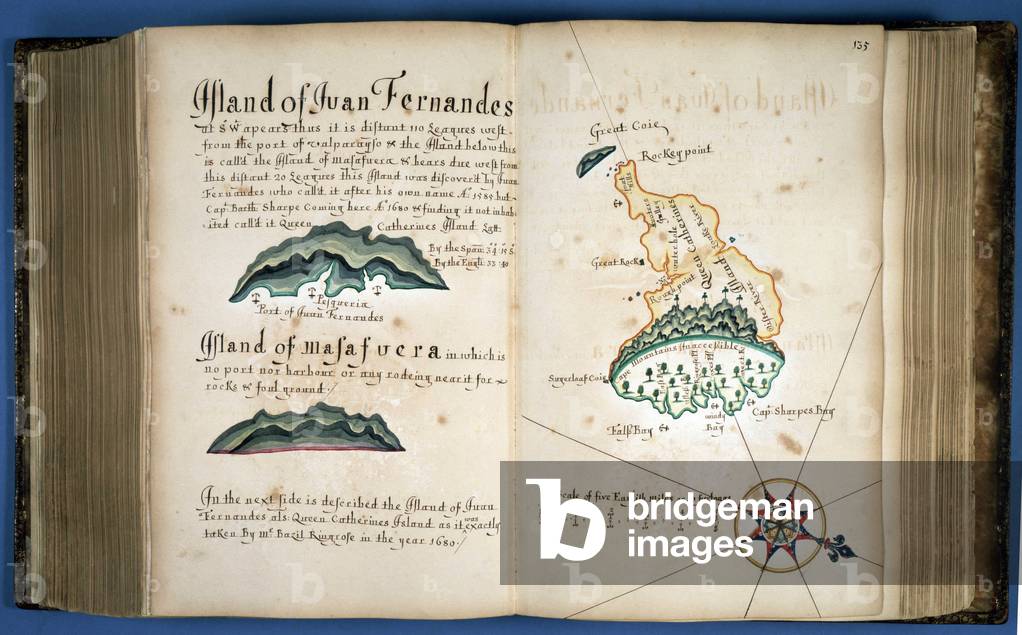 Island of Juan Fernandes
at S.W. apears thus it is distant 110 Leagues west
from the port of valparayso & the Island below this
is call'd the Island of masafuera & bears due west from
this distant 20 Leagues this Island was discover'd by Juan
Fernandes who call'd it after his own name Aº 1588 but
Capt Barth. Sharpe Coming here Aº 1680 & finding it not inhab-
ited call'd it Queen Catherines Island
By the Span:
By the Engli: 33:40
Pesqueria
Port of Juan Fernandes
Island of masafuera in which is
no port nor harbour or any rodeing near it for
rocks & foul ground.
In the next side is described the Island of Juan
Fernandes als: Queen Catherines Island as it was exactly
taken By mr Bazil Ringrose in the year 1680.
135
Great Coie
Rockey point
Queen Catherines Island
Great Rock
Rough point
Cape Mountains Inaccessible
Sugerloaf Coie
Capt Sharpes Bay
windy
Bay
Falss Bay
Scale of five English miles
bridgeman
images